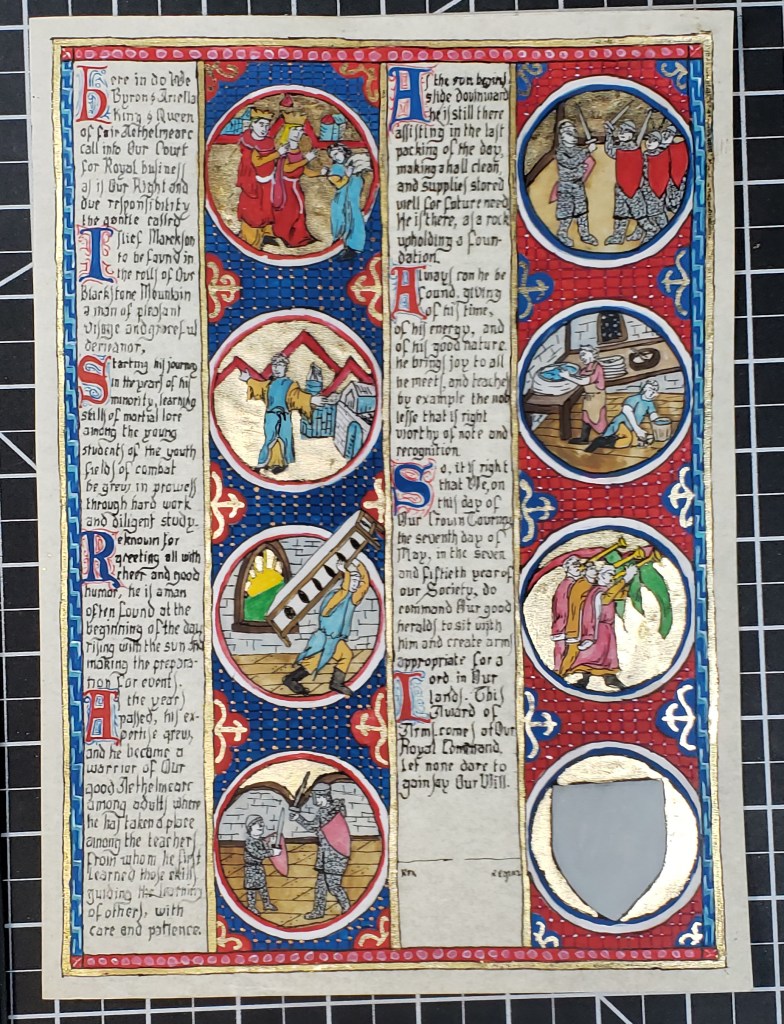 Here in do We
Byron & Ariella
King & Queen
of fair Aethelmearc
call into Our Court
for Royal business
as is Our Right and
due responsibility
the gentle called
Islief Marekson
to be found in
the rolls of Our
Blackstone Mountain
a man of pleasant
visage and graceful
demeanor,
Starting his journey
in the years of his
minority, learning
skills of martial lore
among the young
students of the youth
fields of combat
he grew in prowess
through hard work
and diligent study.
Reknown for
greeting all with
cheer and good
humor, he is a man
often found at the
beginning of the day
rising with the sun and
making the prepara-
tion for events.
As the years
passed, his ex-
pertise grew,
and he become a
warrior of Our
good Aethelmearc
among adults where
he has taken a place
among the teachers
from whom he first
learned those skills
guiding the learning
of others, with
care and patience.
As the sun begins
slide downward
he is still there
assisting in the last
packing of the day,
making a hall clean,
and supplies stored
well for future need
He is there, as a rock
upholding a foun-
dation.
Always can he be
found, giving
of his time,
of his energy, and
of his good nature.
he brings joy to all
he meets, and teaches
by example the nob
lesse that is right
worthy of note and
recognition.
So, it is right
that We, on
this day of
Our Crown Tourney
the seventh day of
May, in the seven
and fiftieth year of
our Society, do
command Our good
heralds to sit with
him and create arms
appropriate for a
Lord in Our
lands. This
Award of
Arms comes at Our
Royal Command.
Let none dare to
gainsay Our Will.
Rex Regina